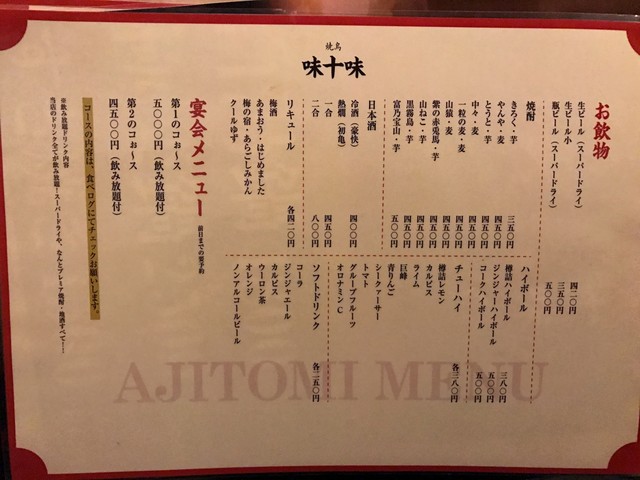 焼鳥
味十味
お飲物
生ビール（スーパードライ） 四二〇円
生ビール小 三五〇円
瓶ビール（スーパードライ） 五〇〇円
焼酎
きろく・芋 三五〇円
やんや・麦 四五〇円
とうと・芋 四五〇円
中々・麦 四五〇円
一粒の麦・麦 四五〇円
山猿・麦 四五〇円
紫の赤兎馬・芋 四五〇円
山ねこ・芋 四五〇円
黒霧島・芋 四五〇円
富乃宝山・芋 五〇〇円
日本酒
冷酒（豪快） 四〇〇円
熱燗（初亀）
一合 四五〇円
二合 八〇〇円
リキュール 各四二〇円
梅酒
あまおう・はじめました
梅の宿・あらごしみかん
クールゆず
ハイボール
樽詰ハイボール 三八〇円
ジンジャーハイボール 五〇〇円
コークハイボール 五〇〇円
チューハイ 各三八〇円
樽詰レモン
カルピス
ライム
巨峰
青りんご
シークァーサー
トマト
グループフルーツ
オロナミンC
ソフトドリンク 各二五〇円
コーラ
ジンジャエール
カルピス
ウーロン茶
オレンジ
ノンアルコールビール
宴会メニュー 前日までの要予約
第1のコぉ〜ス
五〇〇〇円（飲み放題付）
第2のコぉ〜ス
四五〇〇円（飲み放題付）
コースの内容は、食べログにてチェックお願いします。
※飲み放題ドリンク内容
当店のドリンク全てが飲み放題！スーパードライや、なんとプレミア焼酎・地酒すべて！！
AJITOMI MENU